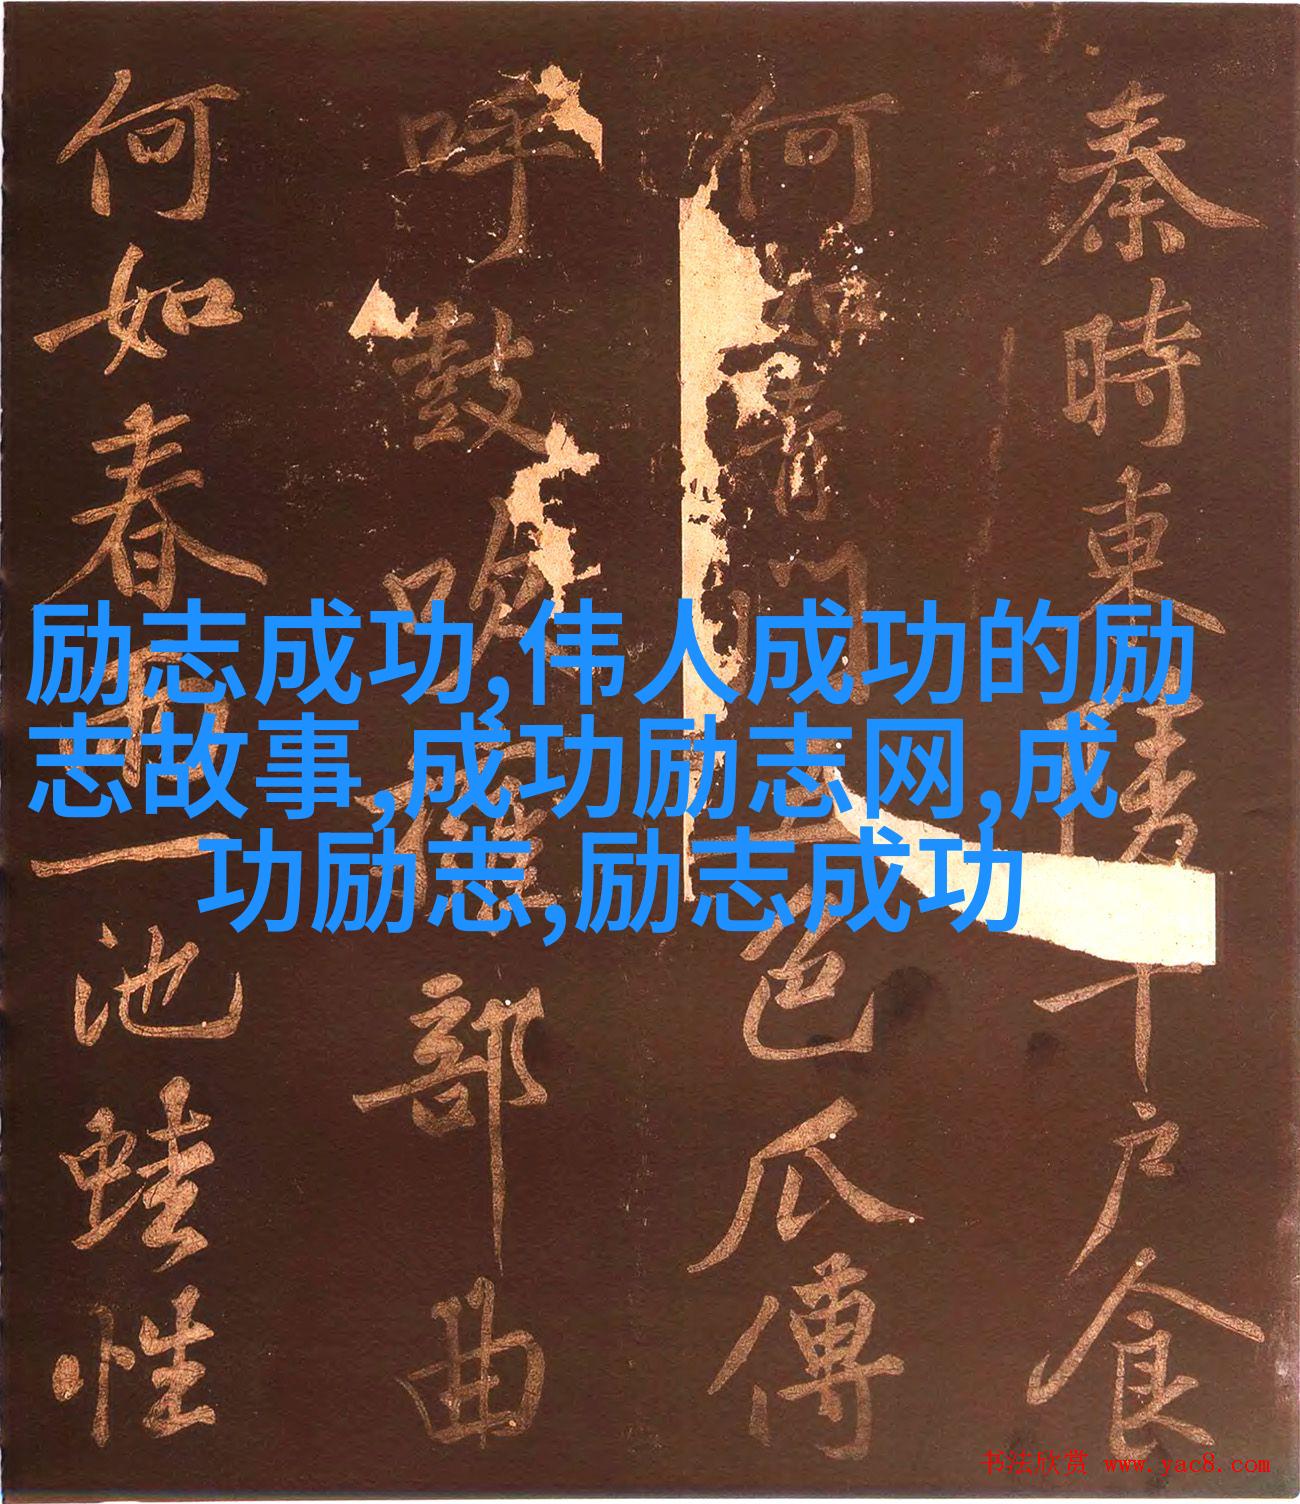 秦時東陵千戶食
何如青門五色瓜傳
呼鼓吹擁部曲
何如春雨一池蛙性
励志成功,伟人成功的励
志故事,成功励志网,成
功励志,励志成功
书法欣赏 www.yac8.com